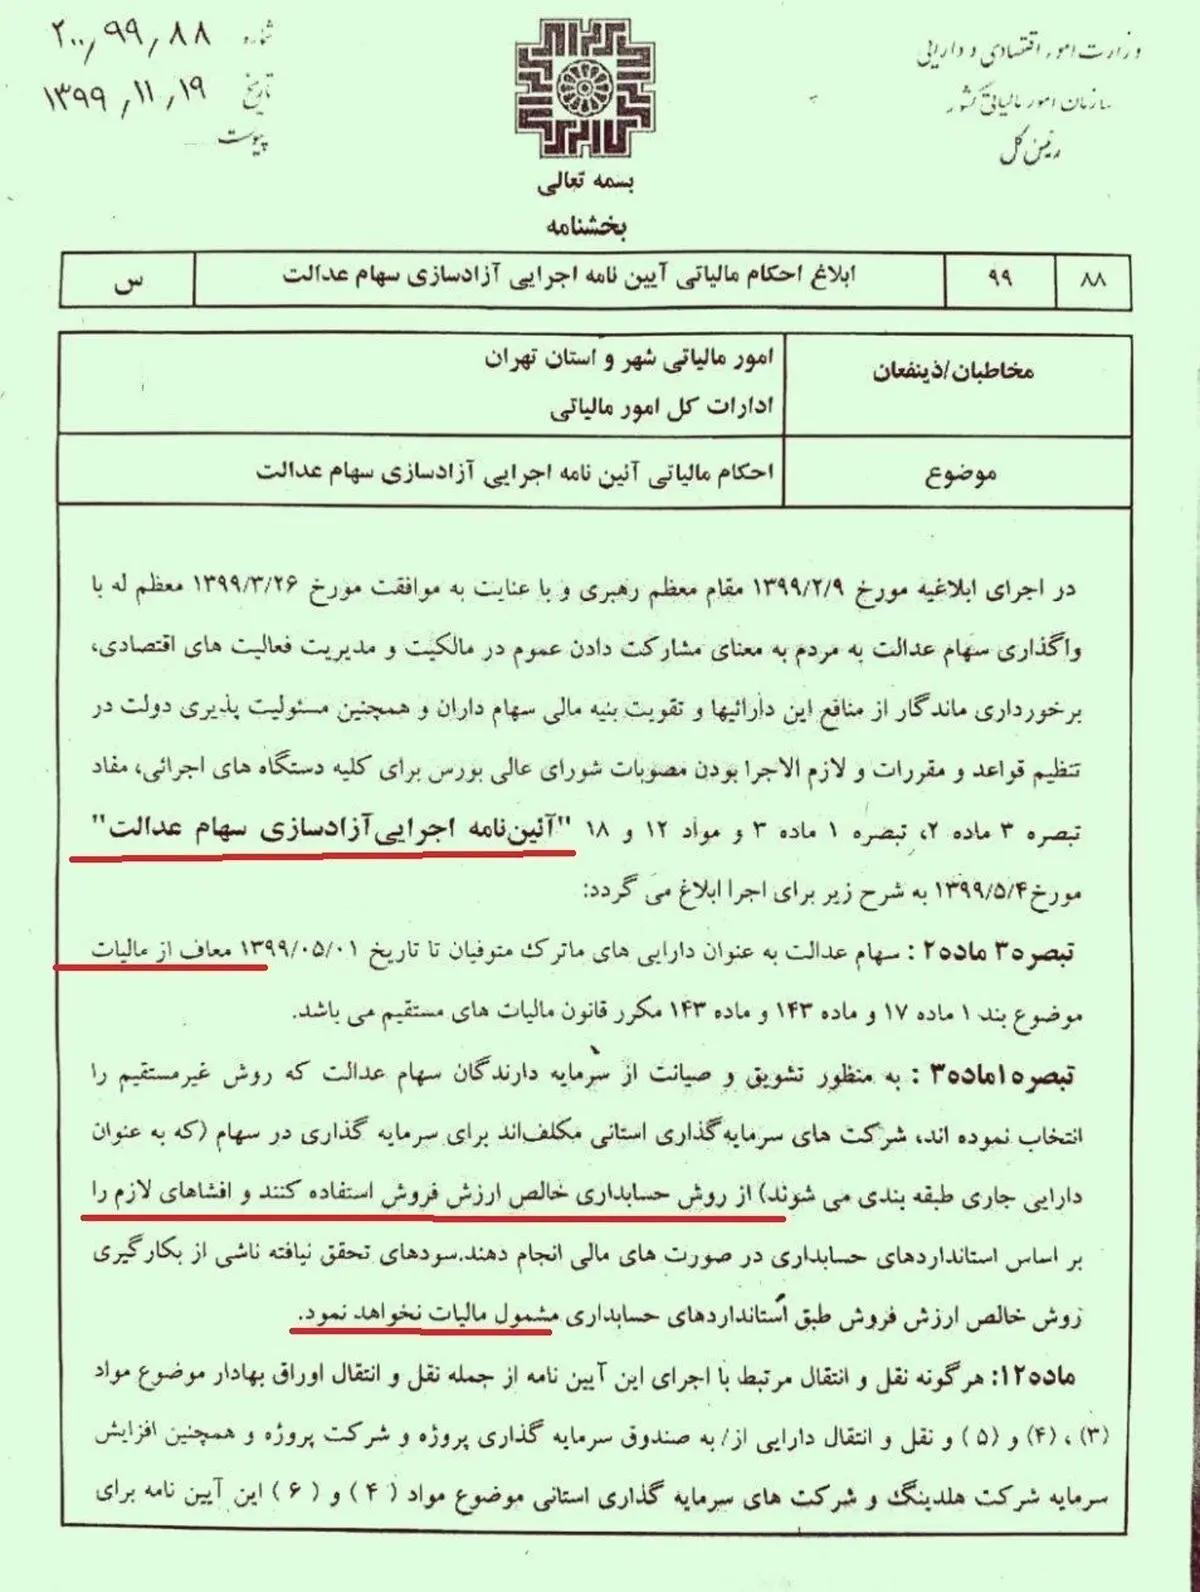 وزارت امور اقتصادی و دارایی
سازمان امور مالیاتی کشور
رئیس کل
شماره ۲۰۰/۹۹/۸۸
تاریخ ۱۳۹۹/۱۱/۱۹
پیوست
بسمه تعالی
بخشنامه
۸۸ ۹۹ ابلاغ احکام مالیاتی آیین نامه اجرایی آزادسازی سهام عدالت س
مخاطبان/ذینفعان
امور مالیاتی شهر و استان تهران
ادارات کل امور مالیاتی
موضوع احکام مالیاتی آئین نامه اجرایی آزادسازی سهام عدالت
در اجرای ابلاغیه مورخ ۱۳۹۹/۲/۹ مقام معظم رهبری و با عنایت به موافقت مورخ ۱۳۹۹/۳/۲۶ معظم له با
واگذاری سهام عدالت به مردم به معنای مشارکت دادن عموم در مالکیت و مدیریت فعالیت های اقتصادی،
برخورداری ماندگار از منافع این دارائیها و تقویت بنیه مالی سهام داران و همچنین مسئولیت پذیری دولت در
تنظیم قواعد و مقررات و لازم الاجرا بودن مصوبات شورای عالی بورس برای کلیه دستگاه های اجرائی، مفاد
تبصره ۳ ماده ۲، تبصره ۱ ماده ۳ و مواد ۱۲ و ۱۸ "آئین‌نامه اجرایی‌آزادسازی سهام عدالت"
مورخ۱۳۹۹/۵/۴ به شرح زیر برای اجرا ابلاغ می گردد:
تبصره۳ ماده۲ : سهام عدالت به عنوان دارایی های ماترک متوفیان تا تاریخ ۱۳۹۹/۰۵/۰۱ معاف از مالیات
موضوع بند ۱ ماده ۱۷ و ماده ۱۴۳ و ماده ۱۴۳ مکرر قانون مالیات های مستقیم می باشد.
تبصره۱ماده۳ : به منظور تشویق و صیانت از سرمایه دارندگان سهام عدالت که روش غیرمستقیم را
انتخاب نموده اند، شرکت های سرمایه‌گذاری استانی مکلف‌اند برای سرمایه گذاری در سهام (که به عنوان
دارایی جاری طبقه بندی می شوند) از روش حسابداری خالص ارزش فروش استفاده کنند و افشاهای لازم را
بر اساس استانداردهای حسابداری در صورت های مالی انجام دهند.سودهای تحقق نیافته ناشی از بکارگیری
روش خالص ارزش فروش طبق استانداردهای حسابداری مشمول مالیات نخواهد نمود.
ماده۱۲: هرگونه نقل و انتقال مرتبط با اجرای این آیین نامه از جمله نقل و انتقال اوراق بهادار موضوع مواد
(۳) ، (۴) و (۵ ) و نقل و انتقال دارایی از/ به صندوق سرمایه گذاری پروژه و شرکت پروژه و همچنین افزایش
سرمایه شرکت هلدینگ و شرکت های سرمایه گذاری استانی موضوع مواد ( ۴ ) و ( ۶ ) این آیین نامه برای